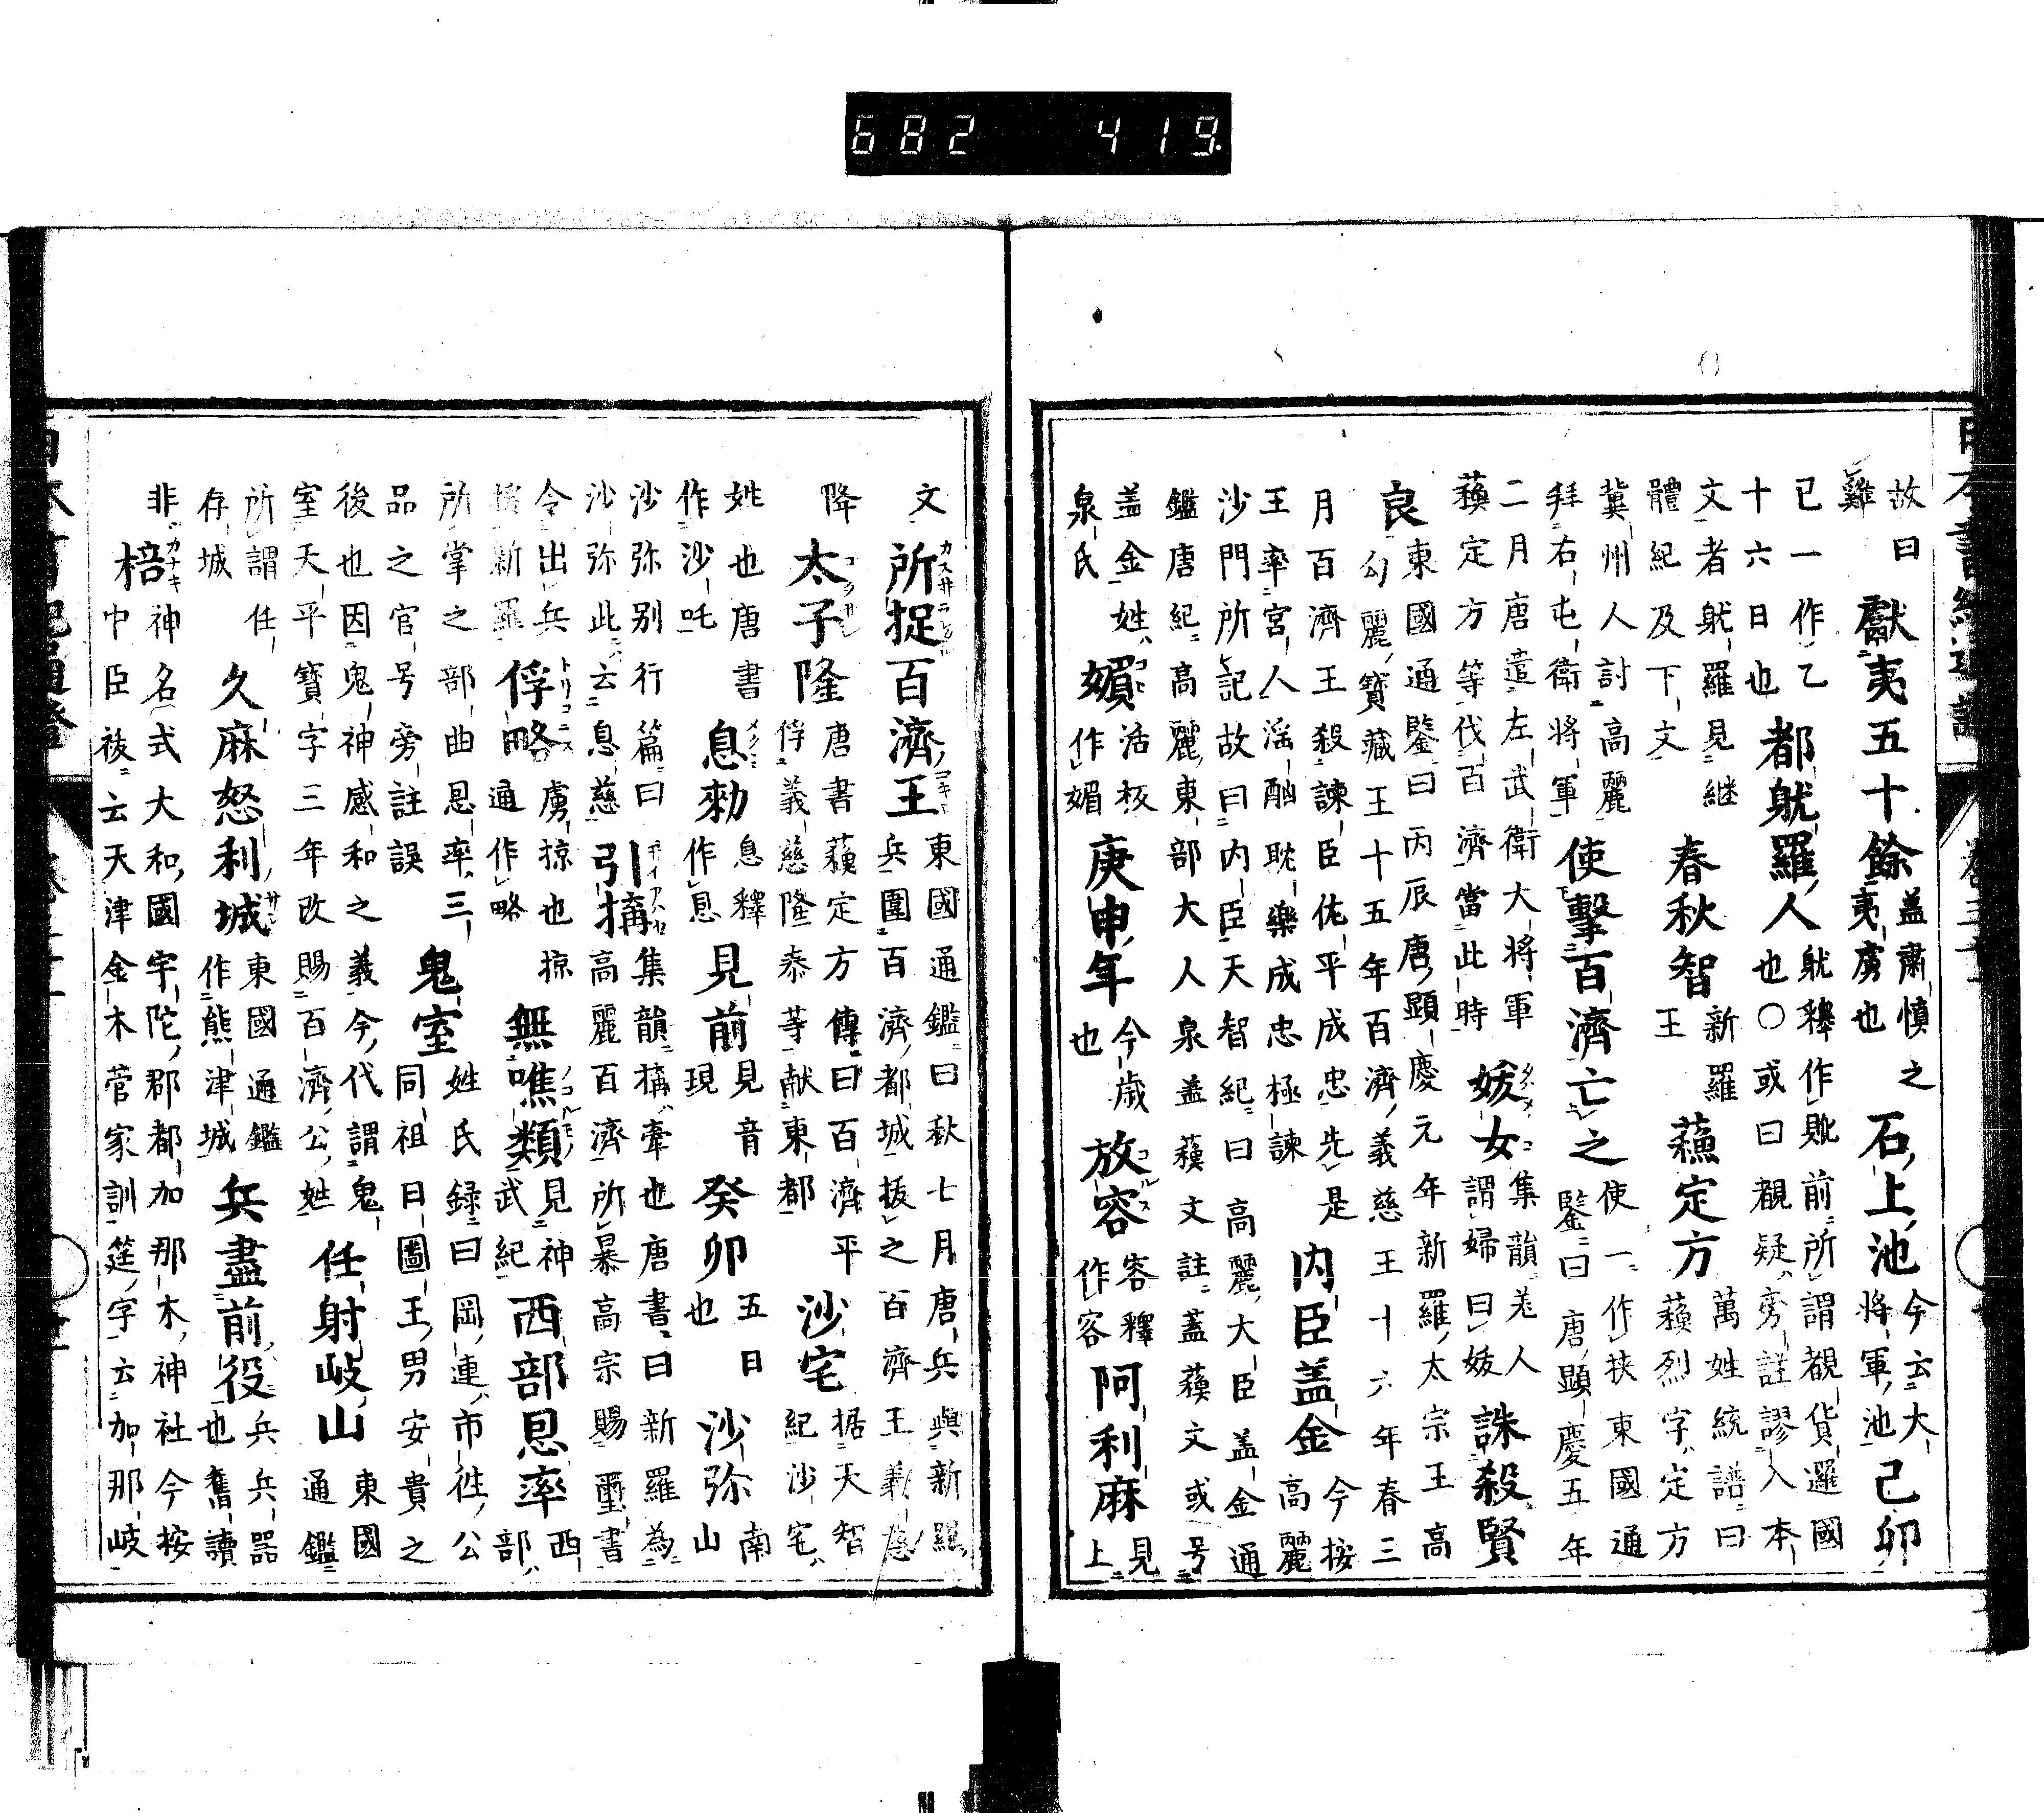 682 419.
故曰獻夷五十餘蓋肅慎之石上池今云大己卯
雞夷虜也將軍池
已一作乙都躭羅人躭釋作耽前所謂覩貨邏國
十六日也也〇或曰覩疑旁註謬入本
文者躭羅見継春秋智新羅蘓定方萬姓統譜曰
體紀及下文王蘓烈字定方
冀州人討高麗使擊百濟亡之使一作挟東國通
拜右屯衛將軍鑒曰唐顯慶五年
二月唐遣左武衛大將軍媛女集韻羌人誅殺賢
蘓定方等伐百濟當此時謂婦曰媛
良東國通鑒曰丙辰唐顯慶元年新羅太宗王高
勾麗寶藏王十五年百濟義慈王十六年春三
月百濟王殺諫臣佐平成忠先是内臣盖金今按
王率宮人滛酗耽樂成忠極諫高麗
沙門所記故曰内臣天智紀曰高麗大臣盖金通
鑑唐紀高麗東部大人泉盖蘓文註盖蘓文或号
盖金姓媚活板庚申年今歳放容容釋阿利麻見
泉氏作媚也作容上
文所捉百濟王東國通鑑曰秋七月唐兵與新羅
兵圍百濟都城拔之百濟王義慈
降太子隆唐書蘓定方傳曰百濟平沙宅据天智
俘義慈隆泰等献東都紀沙宅
姓也唐書息勑息釋見前見音癸卯五日沙弥南
作沙吒作息現也山
沙弥别行篇曰引搆集韻搆牽也唐書曰新羅為
沙弥此云息慈高麗百濟所暴高宗賜璽書
令出兵俘略虜掠也掠無噍類見神西部恩率西
新羅通作略武紀部
所掌之部曲恩率三鬼室姓氏録曰岡連市徃公
品之官号旁註誤同祖日圖王男安貴之
後也因鬼神感和之義今代謂鬼任射岐山東國
室天平寶字三年改賜百濟公姓通鑑
所謂任久麻怒利城東國通鑑兵盡前役兵兵器
存城作熊津城也舊讀
非棓神名式大和國宇陀郡都加那木神社今按
中臣後云天津金木菅家訓筳字云加那岐